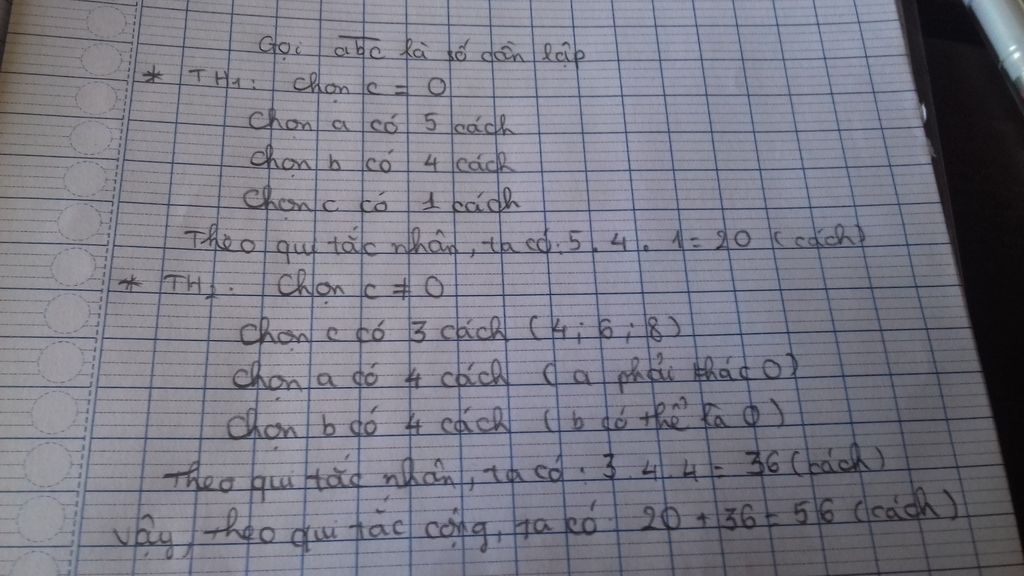 Gọi abc là số cần lập
* TH1: Chọn c = 0
Chọn a có 5 cách
Chọn b có 4 cách
Chọn c có 1 cách
Theo qui tắc nhân, ta có: 5 . 4 . 1 = 20 (cách)
* TH2: Chọn c ≠ 0
Chọn c có 3 cách (4; 6; 8)
Chọn a có 4 cách (a phải khác 0)
Chọn b có 4 cách (b có thể là 0)
Theo qui tắc nhân, ta có: 3 . 4 . 4 = 36 (cách)
Vậy, theo qui tắc cộng, ta có 20 + 36 = 56 (cách)